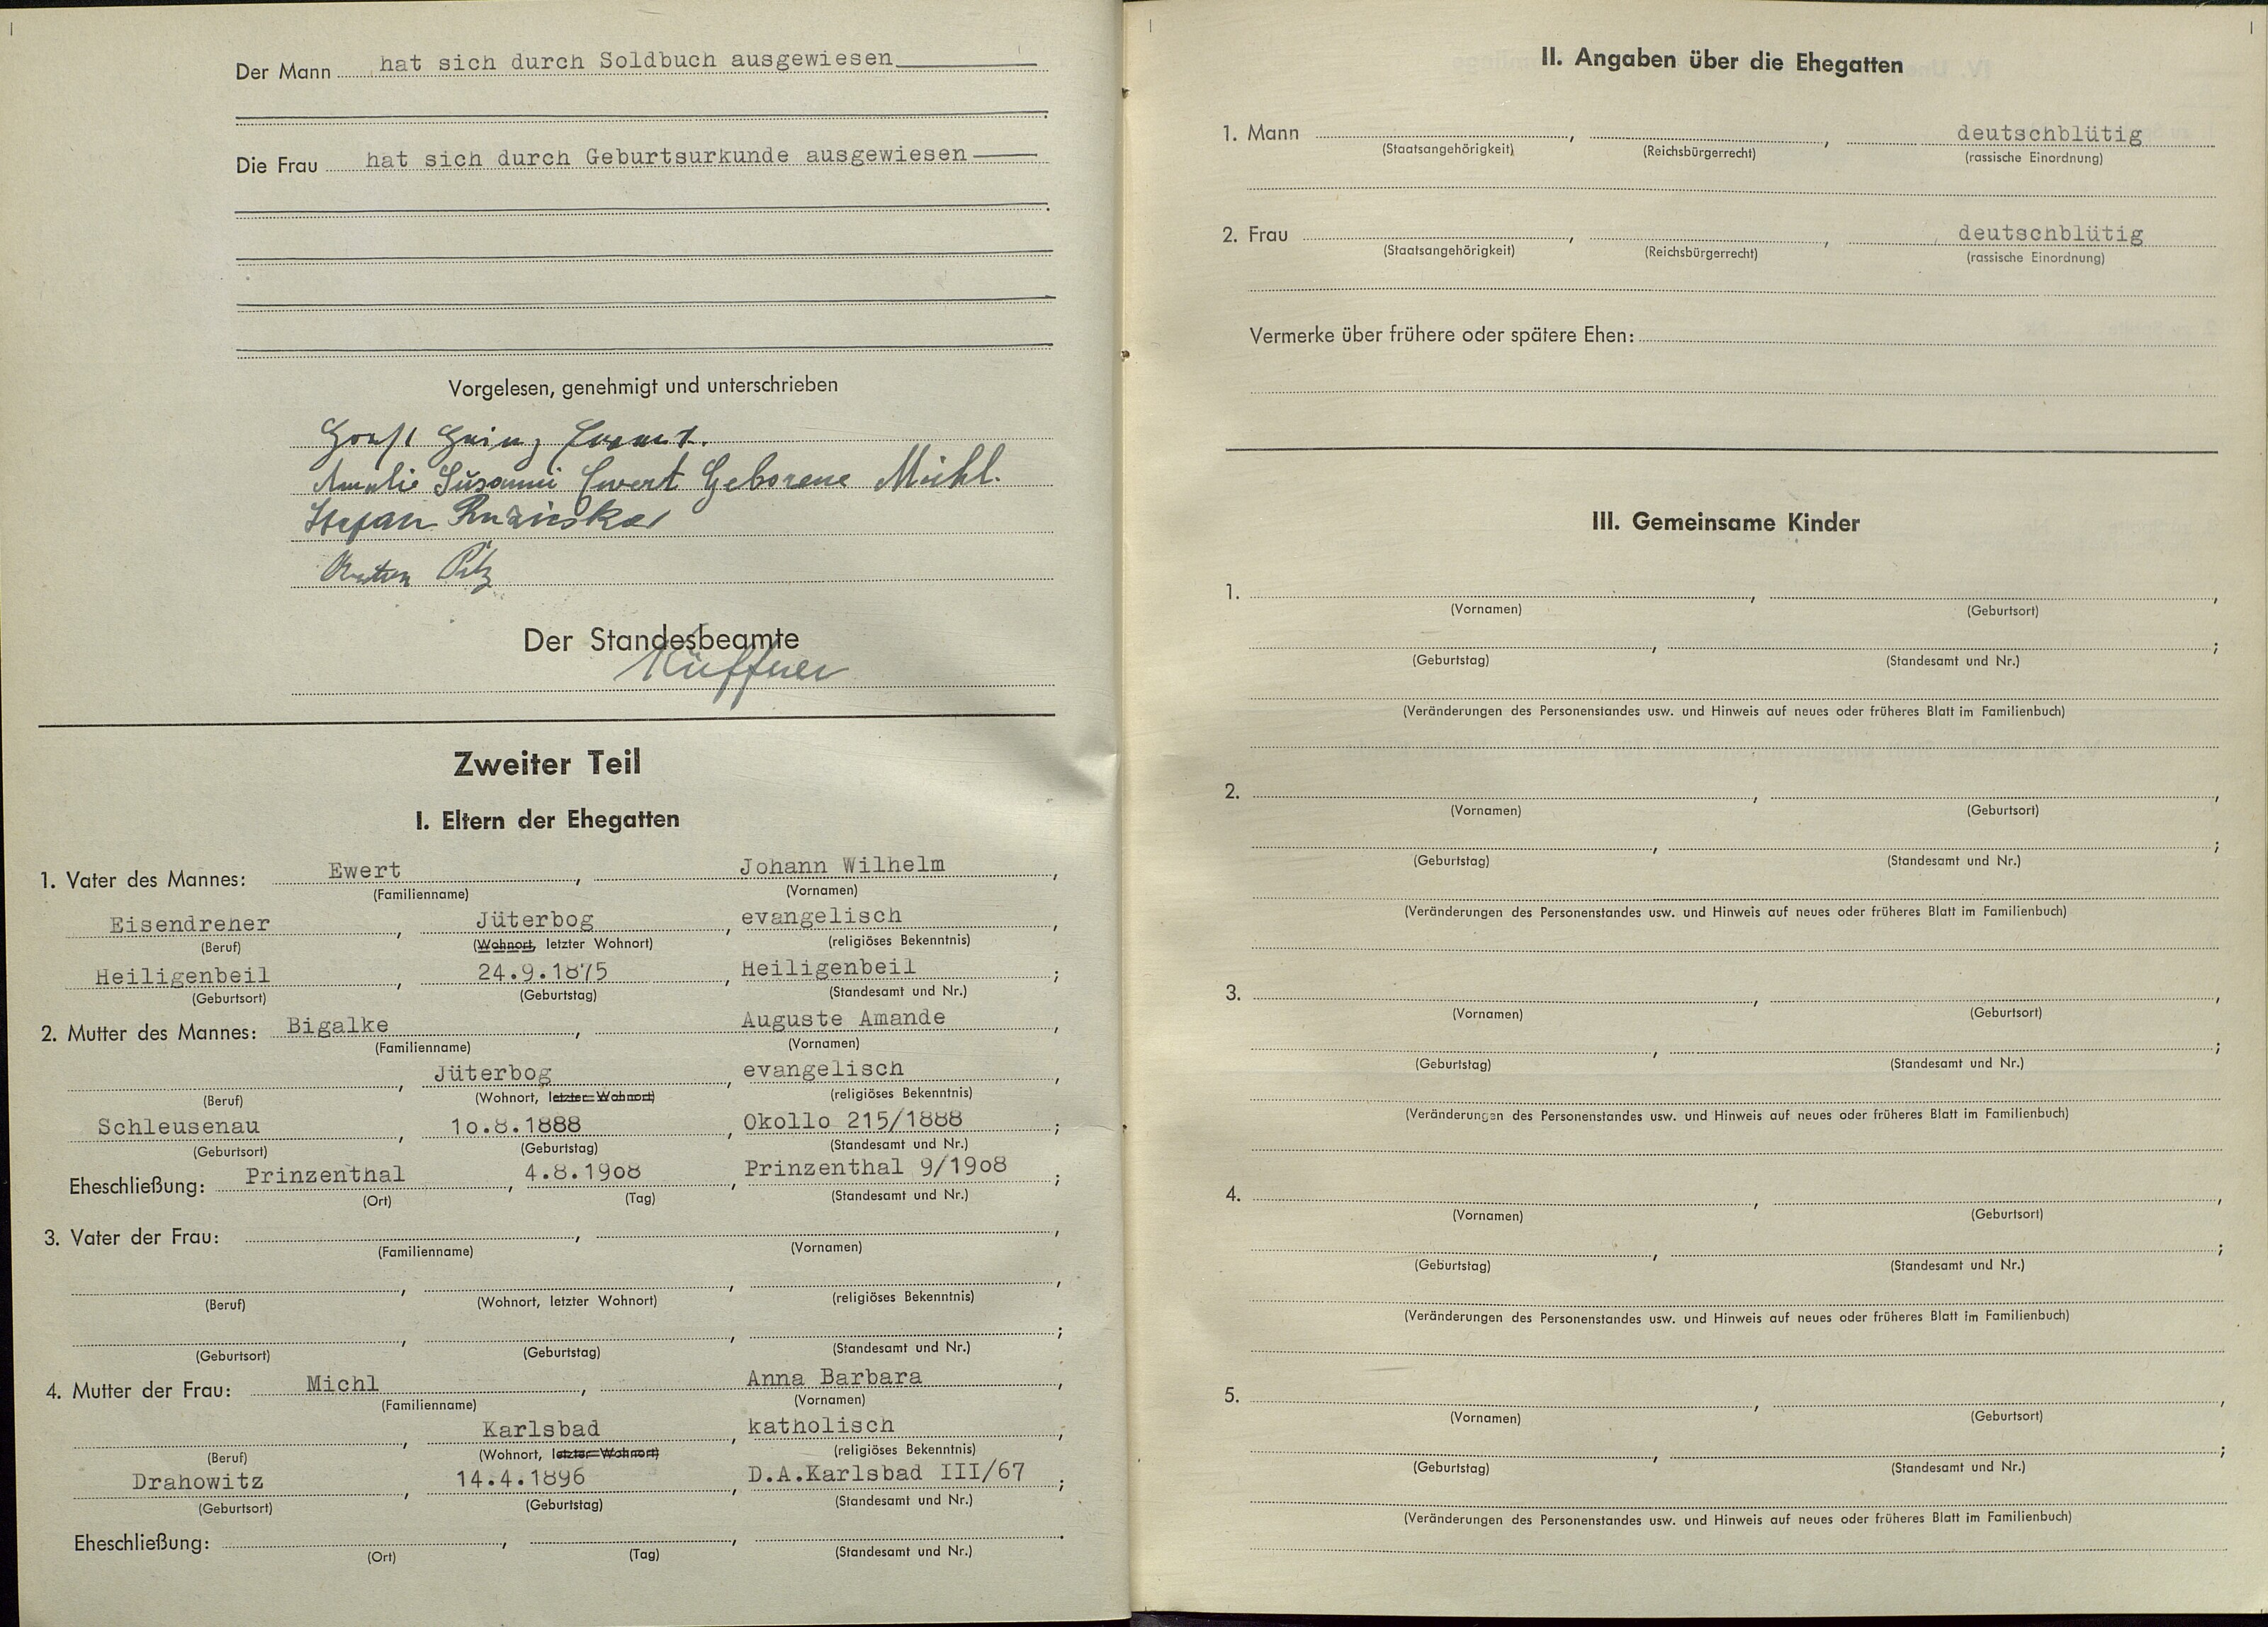 Der Mann hat sich durch Soldbuch ausgewiesen
Die Frau hat sich durch Geburtsurkunde ausgewiesen
Vorgelesen, genehmigt und unterschrieben
Horst Heinz Ewert.
Amalie Susanni Ewert Geborene Michl.
Stefan
Pilz
Der Standesbeamte
Küffner
Zweiter Teil
I. Eltern der Ehegatten
1. Vater des Mannes: Ewert, Johann Wilhelm,
(Familienname) (Vornamen)
Eisendreher, Jüterbog, evangelisch,
(Beruf) (Wohnort, letzter Wohnort) (religiöses Bekenntnis)
Heiligenbeil, 24.9.1875, Heiligenbeil;
(Geburtsort) (Geburtstag) (Standesamt und Nr.)
2. Mutter des Mannes: Bigalke, Auguste Amande,
(Familienname) (Vornamen)
, Jüterbog, evangelisch,
(Beruf) (Wohnort, letzter Wohnort) (religiöses Bekenntnis)
Schleusenau, 1o.8.1888, Okollo 215/1888;
(Geburtsort) (Geburtstag) (Standesamt und Nr.)
Eheschließung: Prinzenthal, 4.8.19o8, Prinzenthal 9/19o8;
(Ort) (Tag) (Standesamt und Nr.)
3. Vater der Frau: , ,
(Familienname) (Vornamen)
, , ,
(Beruf) (Wohnort, letzter Wohnort) (religiöses Bekenntnis)
, , ;
(Geburtsort) (Geburtstag) (Standesamt und Nr.)
4. Mutter der Frau: Michl, Anna Barbara,
(Familienname) (Vornamen)
, Karlsbad, katholisch,
(Beruf) (Wohnort, letzter Wohnort) (religiöses Bekenntnis)
Drahowitz, 14.4.1896, D.A.Karlsbad III/67;
(Geburtsort) (Geburtstag) (Standesamt und Nr.)
Eheschließung: , , .
(Ort) (Tag) (Standesamt und Nr.)
II. Angaben über die Ehegatten
1. Mann , , deutschblütig
(Staatsangehörigkeit) (Reichsbürgerrecht) (rassische Einordnung)
2. Frau , , deutschblütig
(Staatsangehörigkeit) (Reichsbürgerrecht) (rassische Einordnung)
Vermerke über frühere oder spätere Ehen:
III. Gemeinsame Kinder
1. , ,
(Vornamen) (Geburtsort)
, ;
(Geburtstag) (Standesamt und Nr.)
(Veränderungen des Personenstandes usw. und Hinweis auf neues oder früheres Blatt im Familienbuch)
2. , ,
(Vornamen) (Geburtsort)
, ;
(Geburtstag) (Standesamt und Nr.)
(Veränderungen des Personenstandes usw. und Hinweis auf neues oder früheres Blatt im Familienbuch)
3. , ,
(Vornamen) (Geburtsort)
, ;
(Geburtstag) (Standesamt und Nr.)
(Veränderungen des Personenstandes usw. und Hinweis auf neues oder früheres Blatt im Familienbuch)
4. , ,
(Vornamen) (Geburtsort)
, ;
(Geburtstag) (Standesamt und Nr.)
(Veränderungen des Personenstandes usw. und Hinweis auf neues oder früheres Blatt im Familienbuch)
5. , ,
(Vornamen) (Geburtsort)
, ;
(Geburtstag) (Standesamt und Nr.)
(Veränderungen des Personenstandes usw. und Hinweis auf neues oder früheres Blatt im Familienbuch)